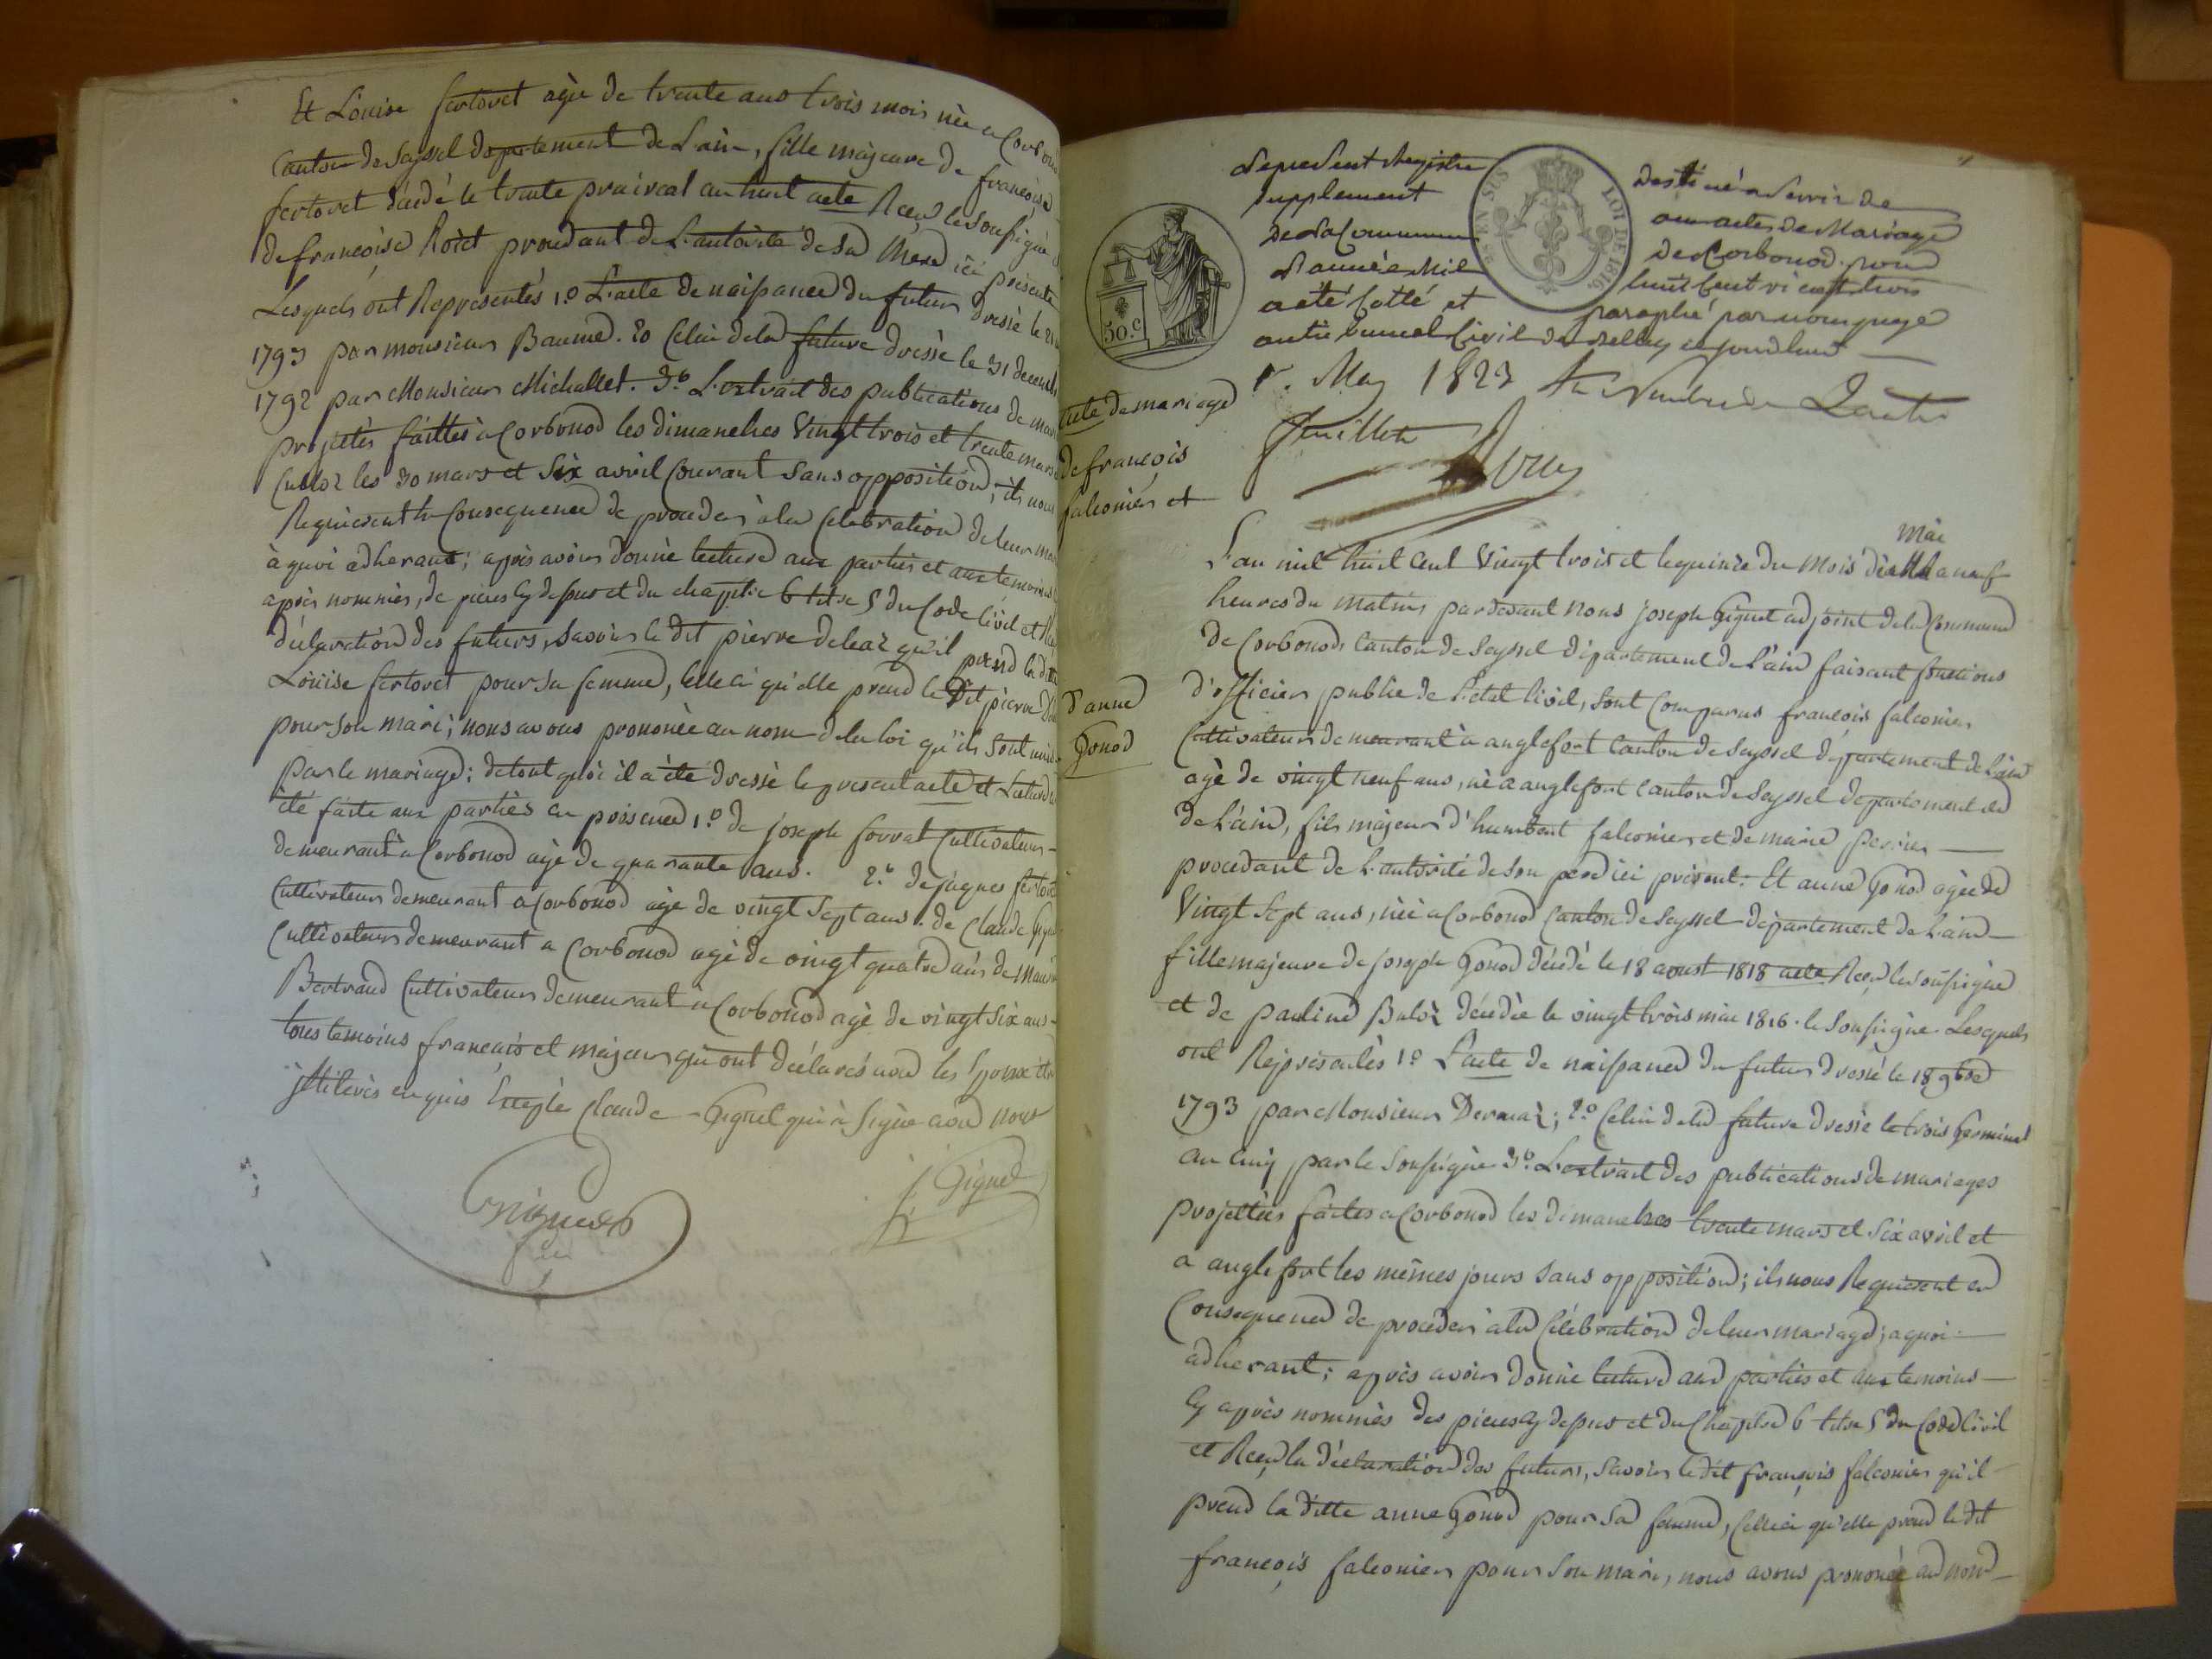 Et Louise fertoret agée de trente ans trois mois née a Corbonod
Canton de Seyssel departement de L'ain, fille majeure de françois
fertoret décédé le trente prairéal an huit acte Recu le soussigné
de françoise Roset procedant de L'autorité de sa Mere ici présente
Lesquels ont Représentés 1º L'acte de naissance du futur dressé le
1793 par monsieur Baume. 2º Celui de la future dressé le 31 decembre
1792 par Monsieur Michallet. 3º L'extrait des publications de mariages
projettés faittes à Corbonod les dimanches Vingt trois et trente mars
Culoz les 30 mars et Six avril Courant Sans opposition; ils nous
Requierent en Consequence de proceder à la Celebration de leur mariage
à quoi adherant; après avoir donné lecture aux parties et aux temoins
après nommés, de pieces cy dessus et du chapitre 6 titre 5 du Code Civil et Recu
déclaration des futurs, Savoir le dit pierre deleaz qu'il prend la ditte
Louise fertoret pour sa femme, Celle ci qu'elle prend le Dit pierre
pour Son mari; nous avons prononcé au nom de la loi qu'ils Sont unis
par le mariage; de tout quoi il a été dressé le present acte et Lecture
été faite aux parties en présence 1º de joseph forrat Cultivateur
demeurant a Corbonod agé de quarante ans. 2º de jaques fertoret
Cultivateur demeurant a Corbonod agé de vingt Sept ans. de Claude Gignet
Cultivateur demeurant a Corbonod agé de vingt quatre ans de
Bertrand Cultivateur demeurant a Corbonod agé de vingt Six ans
tous temoins français et majeurs qui ont déclarés avec les Epoux être
jllitérés enquis Excepté Claude Gignet qui a Signé avec nous
Gignet
j Gignet
Le present Registre
Supplement
de la Commune
L'année Mil
a été Cotté et
destiné a Servir de
aux actes de Mariage
de Corbonod pour
huit Cent vingt trois
paraphé par nous juge
au tribunal Civil de Belley ce jourd'hui
EN SUS
LOI DE 1816
50.C
1er. May 1823
feuillets
acte de mariage
de françois
falconier et
d'anne
Gonod
mai
L'an mil huit Cent Vingt trois et le quinze du Mois de a neuf
heures du matin pardevant Nous joseph Gignet adjoint de la Commune
de Corbonod Canton de Seyssel département de L'ain faisant fonctions
d'officier public de L'état Civil, Sont Comparus françois falconier
Cultivateur demeurant à anglefort Canton de Seyssel département de L'ain
agé de vingt neuf ans, né a anglefort Canton de Seyssel departement
de L'ain, fils majeur d'humbert falconier et de marie perrier
procedant de L'autorité de Son pere ici présent. Et anne Gonod agée de
Vingt Sept ans, née a Corbonod Canton de Seyssel département de L'ain
fille majeure de joseph Gonod décédé le 18 aoust 1818 acte Recu le soussigné
et de pauline Buloz décédée le vingt trois mai 1816. le Soussigné. Lesquels
ont Représentés 1º L'acte de naissance du futur dressé le 18 9bre
1793 par Monsieur Dermaz; 2º Celui de la future dressé le trois Germinal
an Cinq par le Soussigné 3º. L'extrait des publications de mariages
projettées faites a Corbonod les dimanches trente mars et Six avril et
a anglefort les mêmes jours Sans opposition; ils nous Requierent en
Consequence de proceder a la Célébration de leur mariage; a quoi
adherant; après avoir donné lecture aux parties et aux temoins
Cy après nommés des pieces cy dessus et du Chapitre 6 titre 5 du Code Civil
et Recu la déclaration des futurs, Savoir le dit françois falconier qu'il
prend la ditte anne Gonod pour sa femme, Celle ci qu'elle prend le dit
françois falconier pour Son mari, nous avons prononcé au nom